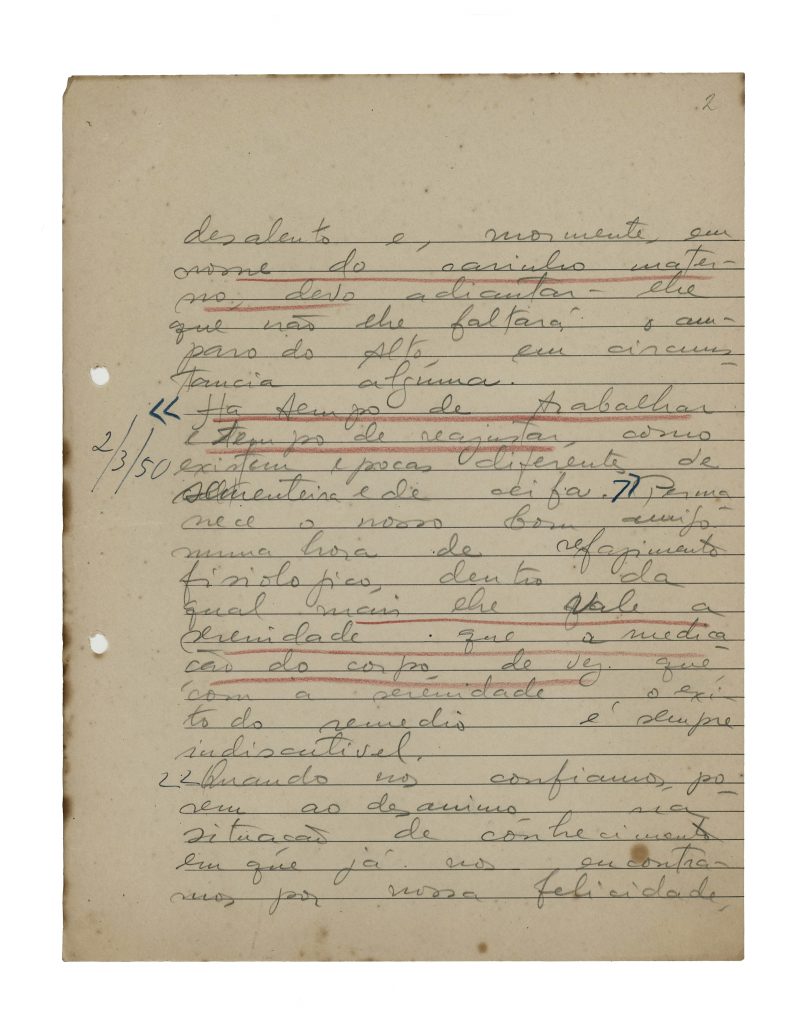 2
desalento e, mormente, em
nome do carinho mater-
no, devo adiantar-lhe
que não lhe faltará o am-
paro do Alto, em circuns-
tancia alguma.
« Ha tempo de trabalhar
2/3/50
e tempo de reajustar, como
existem epocas diferente de
sementeira e de ceifa. » Perma-
nece o nosso bom amigo
numa hora de refazimento
fisiologico, dentro da
qual mais lhe vale a
serenidade que a medica
ção do corpo, de vez que
com a serenidade o exi-
to do remedio é sempre
indiscutivel.
22 Quando nos confiamos, po-
rem ao desanimo na
situação de conhecimento
em que já nos encontra-
mos por nossa felicidade,